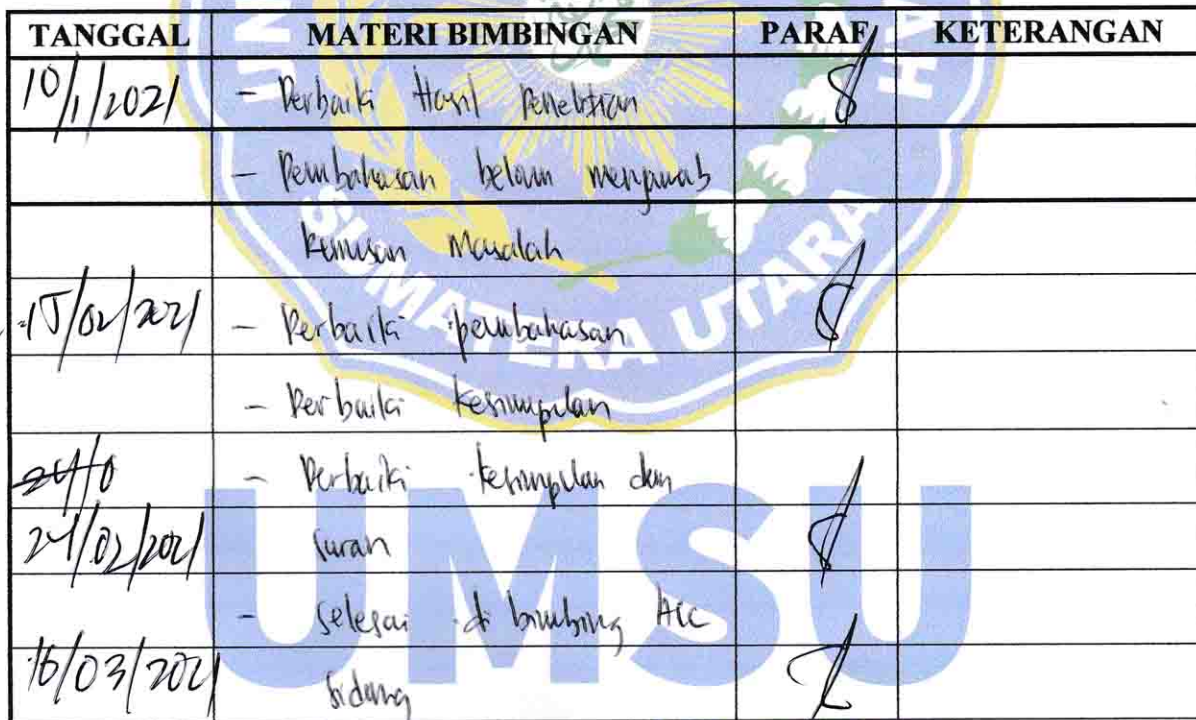 TANGGAL MATERI BIMBINGAN PARAF KETERANGAN
10/1/2021 - Perbaiki Hasil Penelitian
- Pembahasan belum menjawab
Rumusan Masalah
15/02/2021 - Perbaiki pembahasan
- Perbaiki kesimpulan
- Perbaiki kesimpulan dan
24/02/2021 saran
- Selesai di bimbing ACC
16/03/2021 Sidang
SUMATERA UTARA
UMSU